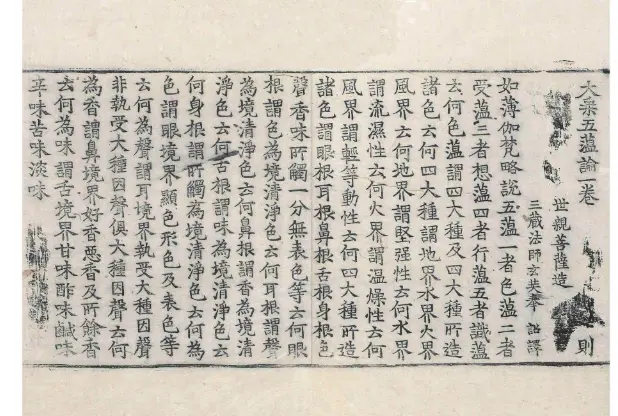 大乗五蘊論卷 則
世親菩薩造
三藏法師玄奘奉 詔譯
如薄伽梵略說五蘊一者色蘊二者
受蘊三者想蘊四者行蘊五者識蘊
云何色蘊謂四大種及四大種所造
諸色云何四大種謂地界水界火界
風界云何地界謂堅强性云何水界
謂流濕性云何火界謂溫燥性云何
風界謂輕等動性云何四大種所造
諸色謂眼根耳根鼻根舌根身根色
聲香味所觸一分無表色等云何眼
根謂色為境清淨色云何耳根謂聲
為境清淨色云何鼻根謂香為境清
淨色云何舌根謂味為境清淨色云
何身根謂所觸為境清淨色云何為
色謂眼境界顯色形色及表色等
云何為聲謂耳境界執受大種因聲
非執受大種因聲俱大種因聲云何
為香謂鼻境界好香惡香及所餘香
云何為味謂舌境界甘味酢味鹹味
辛味苦味淡味